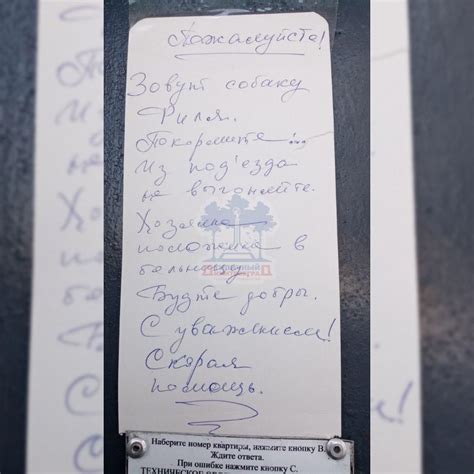 Пожалуйста!
Зовут собаку
Филя.
Покормите
Из под'езда
не выгоняйте.
Хозяина
положили в
больницу.
Будте добры.
С уважением!
Скорая
помощь.
Наберите номер квартиры, нажмите кнопку В.
Ждите ответа.
При ошибке нажмите кнопку С.